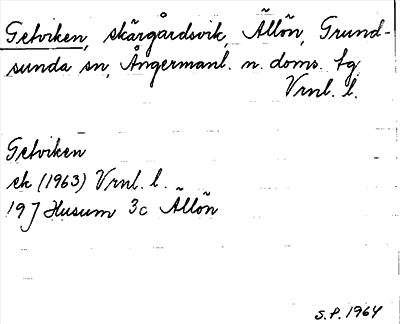 Getviken, skärgårdsvik, Ällön, Grund-
sunda sn, Ångermanl. n. doms. fg.
Vrnl. l.
Getviken
ek (1963) Vrnl. l.
19 J Husum 3c Ällön
S.P. 1964